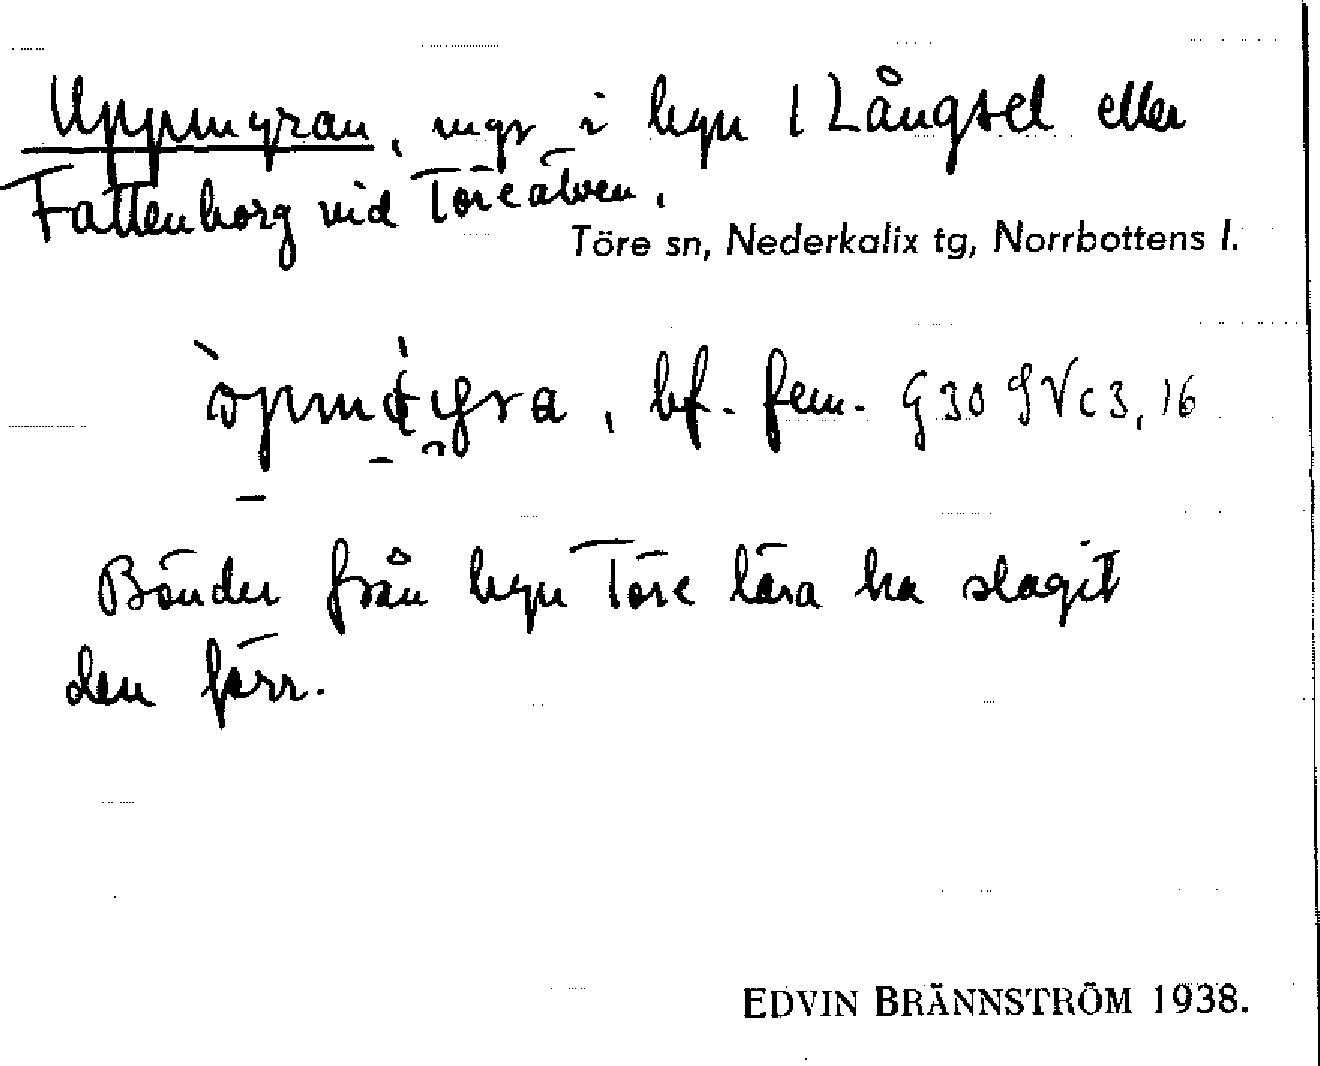 Uppmyran, myr i byn 1 Långsel eller
Fattenborg vid Töreälven.
Töre sn, Nederkalix tg, Norrbottens l.
bf. fem. G 30 S V c 3, 16
Bönder från byn Töre lära ha slagit
den förr.
EDVIN BRÄNNSTRÖM 1938.